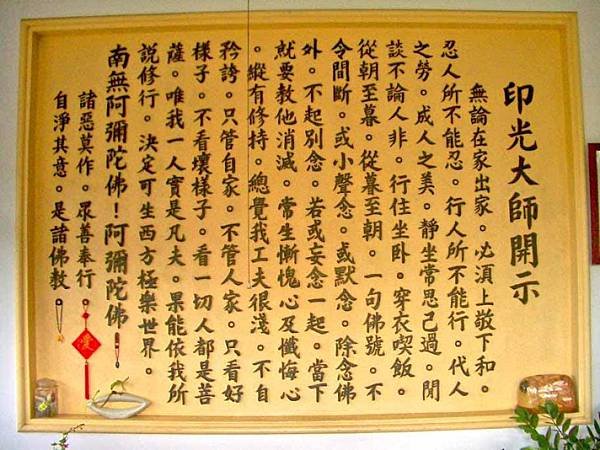 印光大師開示
無論在家出家。必須上敬下和。
忍人所不能忍。行人所不能行。代人
之勞。成人之美。靜坐常思己過。閒
談不論人非。行住坐卧。穿衣喫飯。
從朝至暮。從暮至朝。一句佛號。不
令間斷。或小聲念。或默念。除念佛
外。不起別念。若或妄念一起。當下
就要教他消滅。常生慚愧心及懺悔心
。縱有修持。總覺我工夫很淺。不自
矜誇。只管自家。不管人家。只看好
樣子。不看壞樣子。看一切人都是菩
薩。唯我一人實是凡夫。果能依我所
說修行。決定可生西方極樂世界。
南無阿彌陀佛！阿彌陀佛！
諸惡莫作。眾善奉行
自淨其意。是諸佛教